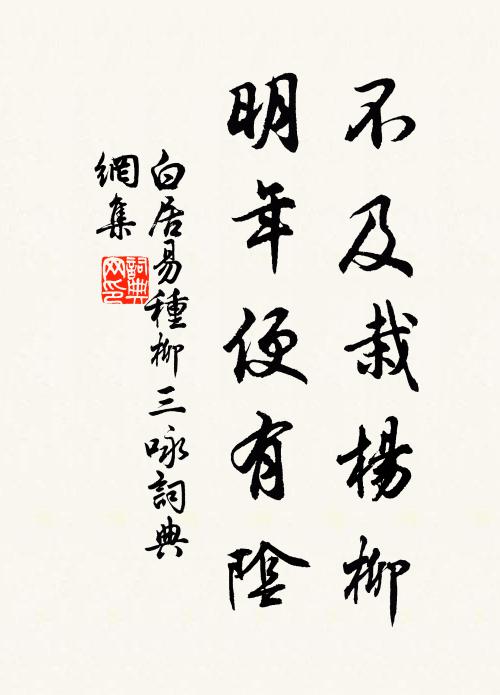 不及栽楊柳
明年便有陰
白居易種柳三咏詞典
網集
詞典
网印